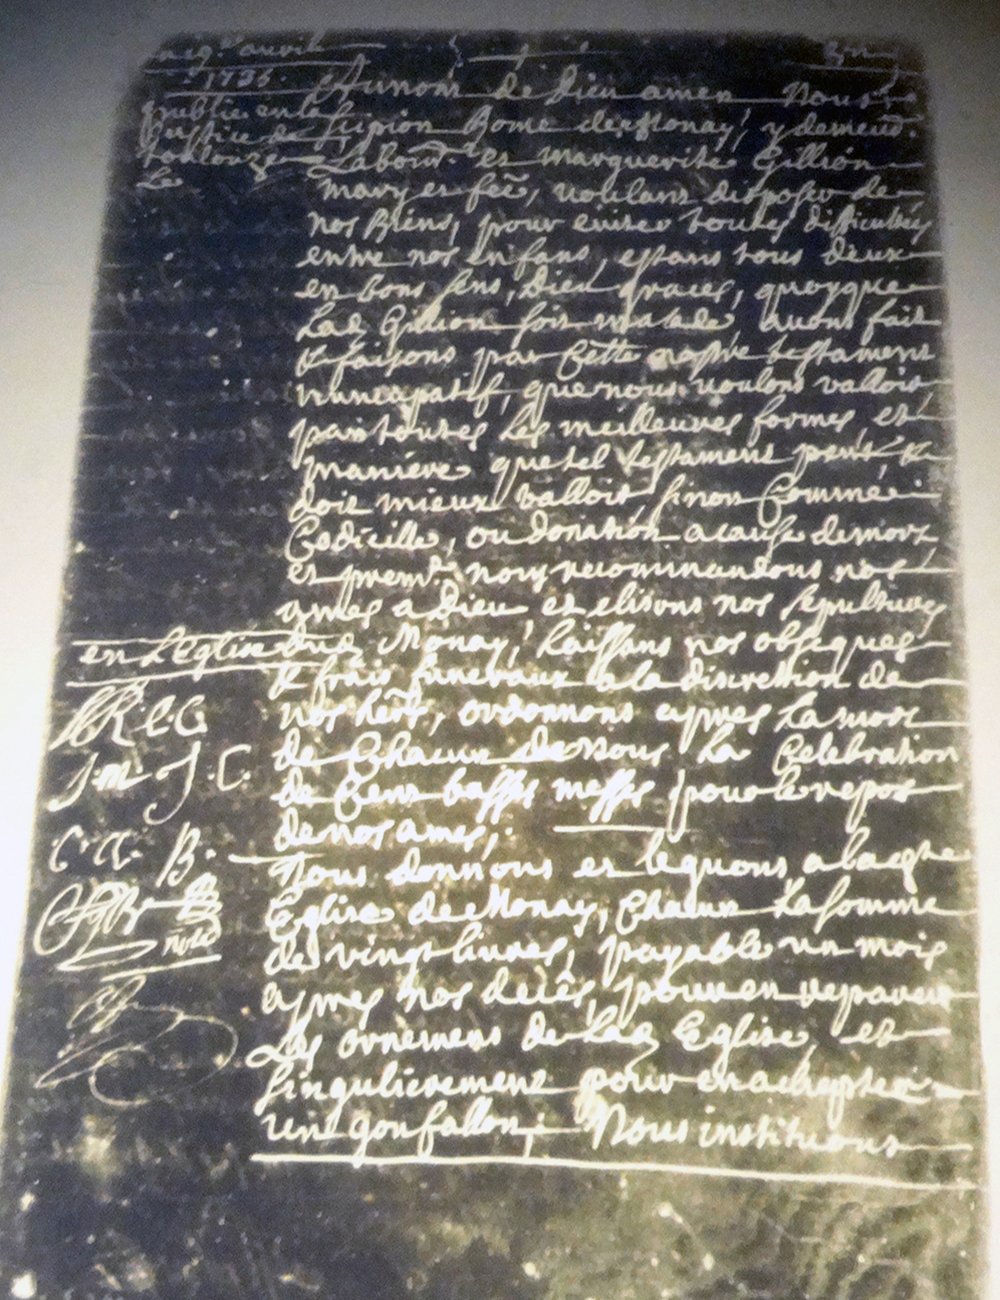 cinq.e avril
1735.
publié en la
Justice de
toulouze
Le
Au nom de Dieu amen Nous
Supion Rome de Monay, y demeur.
Labour. et marguerite Gillion
mary et fẽe, voulans disposer de
nos Biens, pour eviter toutes difficultés
entre nos enfans, estans tous deux
en bons sens, Dieu graces, quoyque
Lad Gillion soit malade, avons fait
& faisons par Cette nostre testament
nuncupatif, que nous voulons valloir
par toutes les meilleures formes, et
maniere que tel testament peut, &
doit mieux valloir, sinon Comme
Codicille, ou donation a cause de mort
et prem.t nous recommandons nos
ames a Dieu et elisons nos sepultures
en L'Eglise dud Monay, Laissans nos obseques
& frais funeraux a la discretion de
nos hers, ordonnons apres La mort
de Chacun de Nous La Celebration
de Cent basses messes pour le repos
de nos ames;
Nous donnons et leguons a lad
Eglise de Monay, Chacun La somme
de vingt livres, payable un mois
apres nos decès, pour en reparer
Les ornemens de Lad Eglise, et
singulierement pour en achepter
un gonfallon; Nous instituons
J. m J. C.
C. a. B.
notr